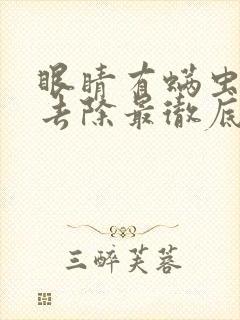 眼睛有螨虫
去除最徹底
三醉芙蓉